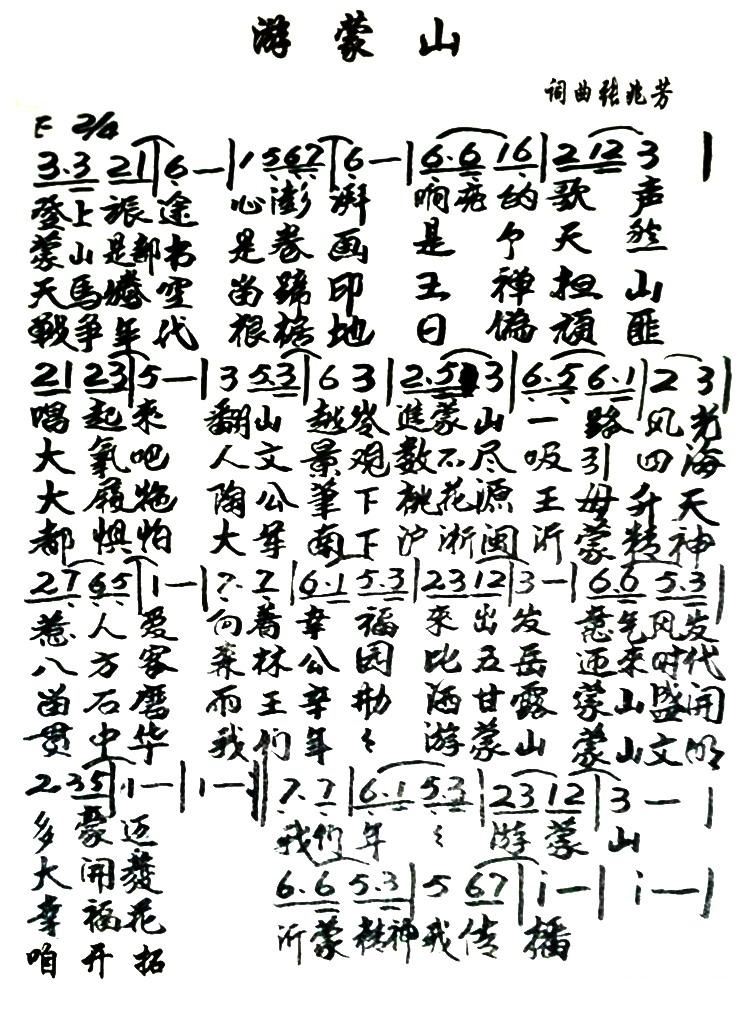 游蒙山
词曲张兆芳
F 2/4
3·3 21 | 6 — | 1 567 | 6 — | 6·6 16 | 2 12 | 3 |
登上旅途 心澎湃 响亮的歌声
蒙山是部书 是卷画 是个天然
天马 空 留蹄印 王禅担山
战争年代 根据地 日伪顽匪
21 23 | 5 — | 3 5·3 | 6 3 | 2·5 3 | 6·5 6·1 | 2 3 |
唱起来 翻山越岭进蒙山一路风光
大氧吧 人文景观数不尽吸引四海
大 陶公笔下桃花源王母升天
都惧怕 大军南下沪浙闽沂蒙精神
27 65 | 1 — | 7·7 | 6·1 5·3 | 23 12 | 3 — | 6·6 5·3 |
惹人爱 向着幸福来出发意气风发
八方客 森林公园比五岳迎来时代
留石磨 雨王 洒甘露蒙山盛开
贯中华 我们年年游蒙山蒙山文明
2·35 | 1 — | 1 — :|| 7·7 | 6·1 5·3 | 23 12 | 3 — |
多豪迈 我们年年游蒙山
大开发
幸福花 6·6 5·3 | 5 67 | i — | i — |
咱开拓 沂蒙精神我传播